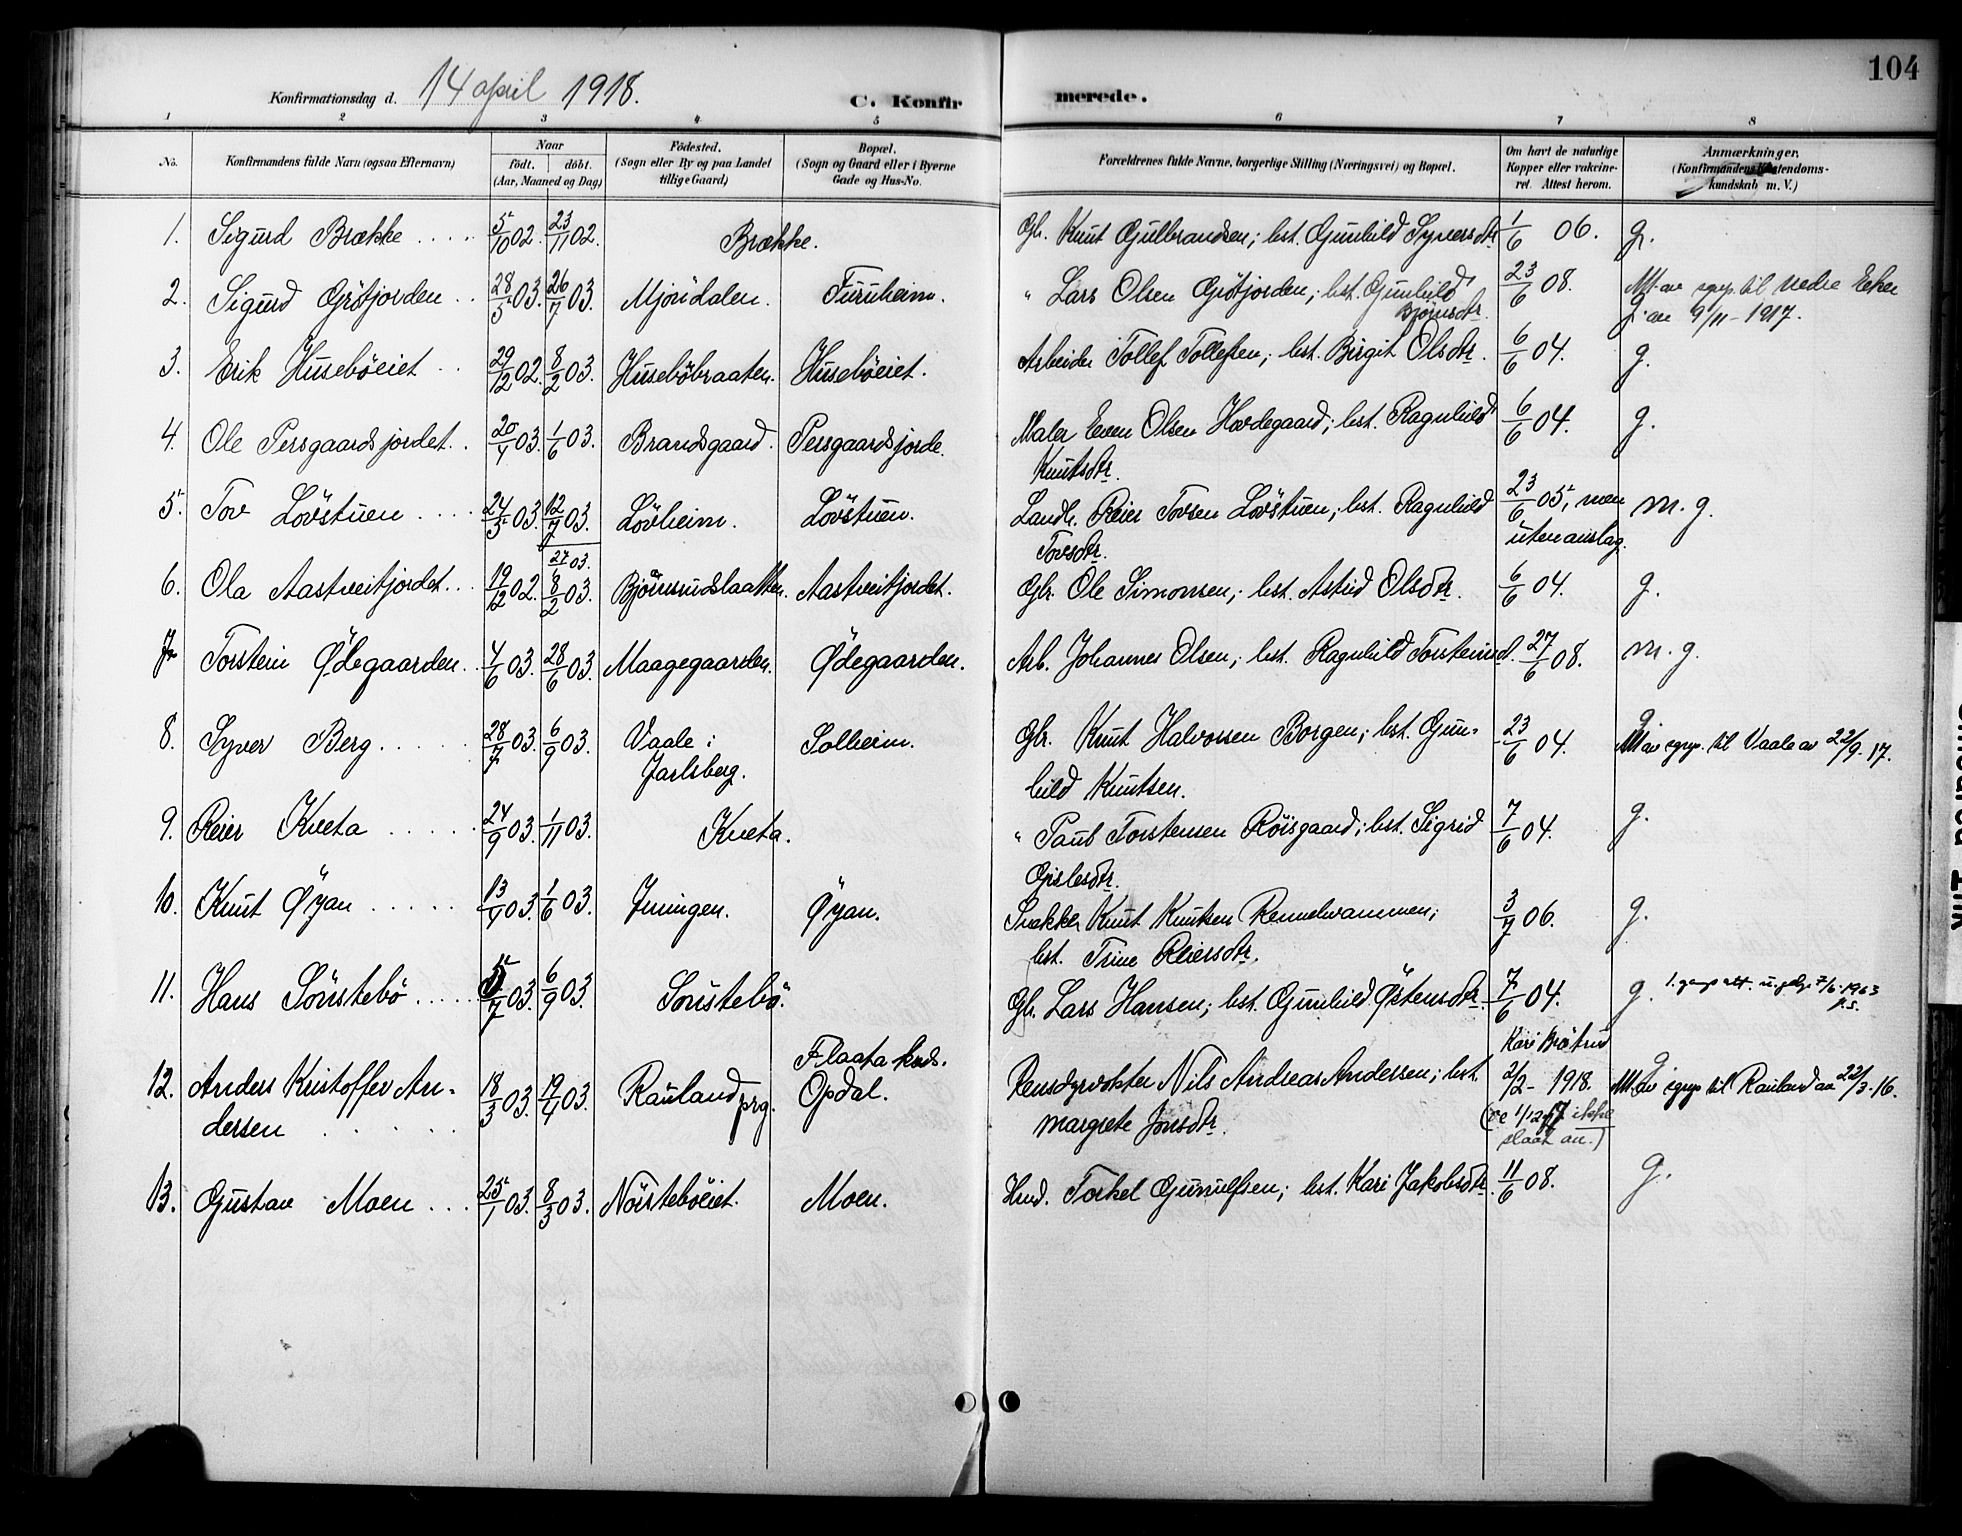 104
Konfirmationsdag d. 14 april 1918. C. Konfirmerede.
1 2 3 4 5 6 7 8
No. Konfirmandens fulde Navn (ogsaa Efternavn) Naar født. døbt. (Aar, Maaned og Dag) Fødested. (Sogn eller By og paa Landet tillige Gaard) Bopæl. (Sogn og Gaard eller i Byerne Gade og Hus-No. Forældrenes fulde Navne, borgerlige Stilling (Næringsvei) og Bopæl. Om havt de naturlige Kopper eller vakcineret. Attest herom. Anmærkninger. (Konfirmandens Kristendomskundskab m. V.)
1. Sigurd Brække .... 5/10 02. 23/11 02. Brække. Gbr. Knut Gulbrandsen; hst. Gunhild Syversdtr 1/6 06. g.
2. Sigurd Grötjorden .. 28/5 03. 26/7 03. Mjöndalen. Furuheim. " Lars Olsen Grötjorden; hst. Gunhild 23/6 08. til nedre Eker
Björnsdtr. 9/11-1917.
3. Erik Huseböeiet .. 29/12 02. 8/2 03. Huseböbraaten. Huseböeiet. Arbeider Tollef Tollefsen; hst. Birgit Olsdtr. 6/6 04. g.
4. Ole Persgaardsjordet.. 20/4 03. 1/6 03. Brandsgaard. Persgaardsjorde. Maler Even Olsen Hovdegaard; hst. Ragnhild 6/6 04. g.
Knutsdtr.
5. Tov Lövstuen .... 24/5 03. 12/7 03. Lövheim. Lövstuen. Landh. Reier Tovsen Lövstuen; hst. Ragnhild 23/6 05, men m. g.
Tovsdtr. uten anslag.
27 03.
6. Ola Aastveitjordet... 19/12 02. 8/2 03. Björnsrudslaatten. Aastveitjordet. Gbr. Ole Simonsen; hst. Astrid Olsdtr. 6/6 04. g.
7. Torstein Ødegaarden.. 4/6 03. 28/6 03. Maagegaarden. Ødegaarden. Arb. Johannes Olsen; hst. Ragnhild Torsteinsd. 27/6 08. m. g.
8. Syver Berg ..... 28/7 03. 6/9 03. Vaale i Solheim. Gbr. Knut Halvorsen Borgen; hst. Gun- 23/6 04. g
Jarlsberg. hild Knutsen. til Vaale av 22/9. 17.
9. Reier Kveta ..... 24/9 03. 1/11 03. Kveta. " Paul Torstensen Röisgaard; hst. Sigrid 7/6 04. g.
Gislesdtr.
10. Knut Øyan ..... 13/4 03. 1/6 03. Juvingen. Øyan. Snekker Knut Knutsen Rennehvammen; 3/7 06. g.
hst. Trine Reiersdtr.
11. Hans Sönstebö ..... 5/7 03. 6/9 03. Sönstebö. Gbr. Lars Hansen; hst. Gunhild Østensdtr. 7/6 04. g. 7/6-1963
Flaata hos. Kari Bråtrud
12. Anders Kristoffer An- 18/3 03. 19/4 03. Rauland prg. Opdal. Rensdyrvokter Nils Andreas Andersen; hst. 2/2 - 1918. g
dersen ..... Margrete Jonsdtr. ikke slaat an.) til Rauland av 22/3-16.
13. Gustav Moen ... 25/1 03. 8/3 03. Nörsteböeiet. Moen. Hmd. Torkel Gunulfsen; hst. Kari Jakobsdtr. 11/6 08. g.